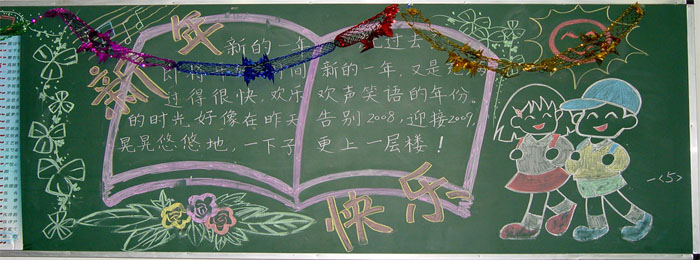 新年
新的一年 已过去
时间 新的一年,又是
过得很快,欢乐 欢声笑语的年份。
的时光好像在昨天 告别2008,迎接2009,
晃晃悠悠地,一下子 更上一层楼!
快乐
一<5>